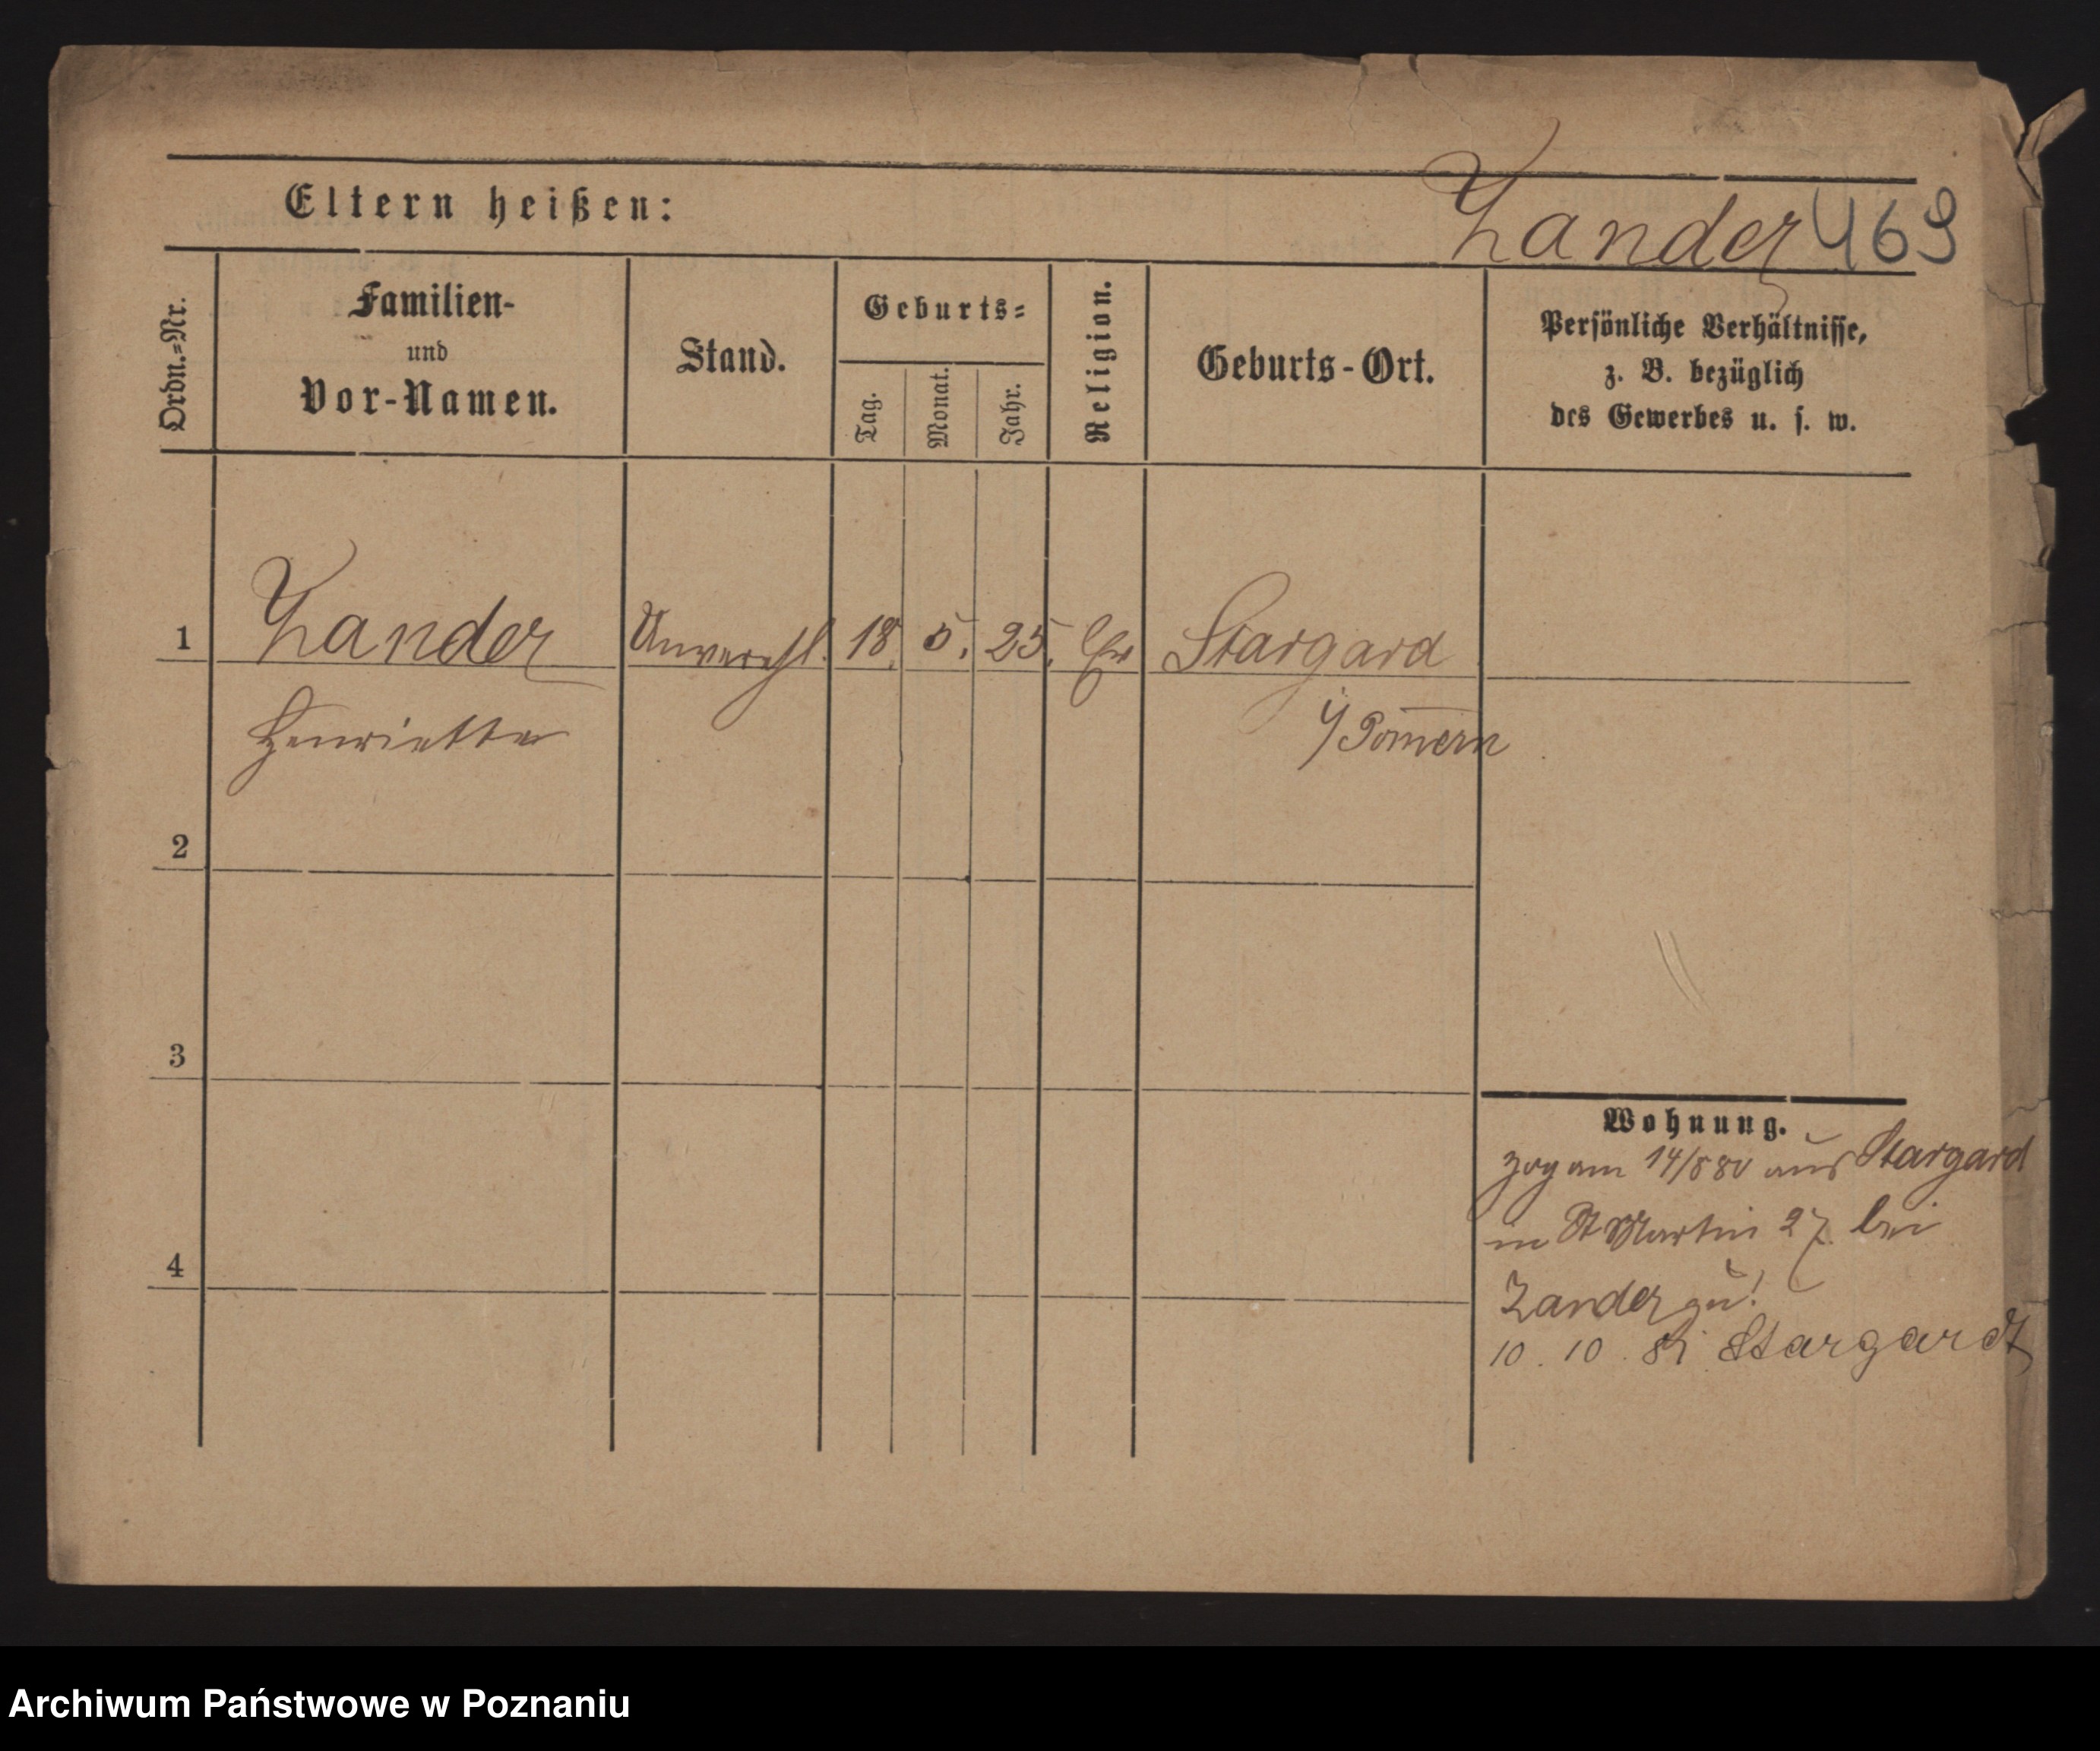 Eltern heißen:
Zander 469
Ordn.=Nr.
Familien-
und
Vor-Namen.
Stand.
Geburts=
Tag.
Monat.
Jahr.
Religion.
Geburts-Ort.
Persönliche Verhältnisse,
z. B. bezüglich
des Gewerbes u. s. w.
1 Zander Unverehl. 18. 5. 25. Ev Stargard
Henriette i/Pomern
2
3
4
Wohnung.
zog am 14/5 80 aus Stargard
in St Martin 27 bei
Zander zu!
10. 10. 81 Stargardt
Archiwum Państwowe w Poznaniu